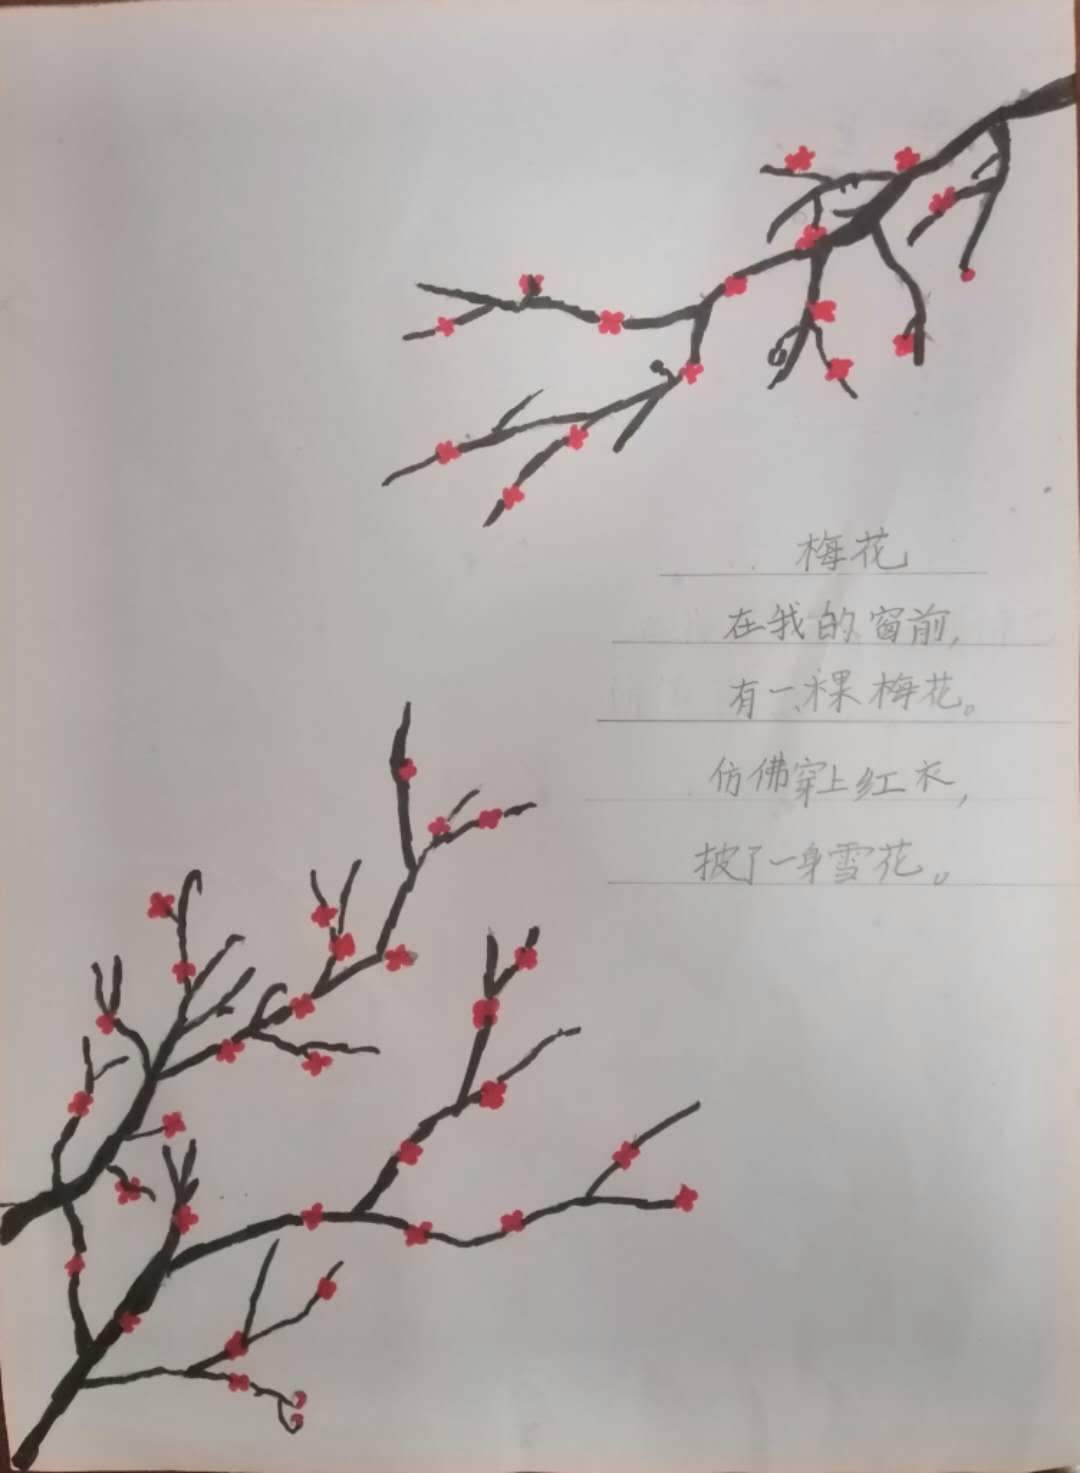 梅花
在我的窗前,
有一棵梅花。
仿佛穿上红衣,
披了一身雪花。